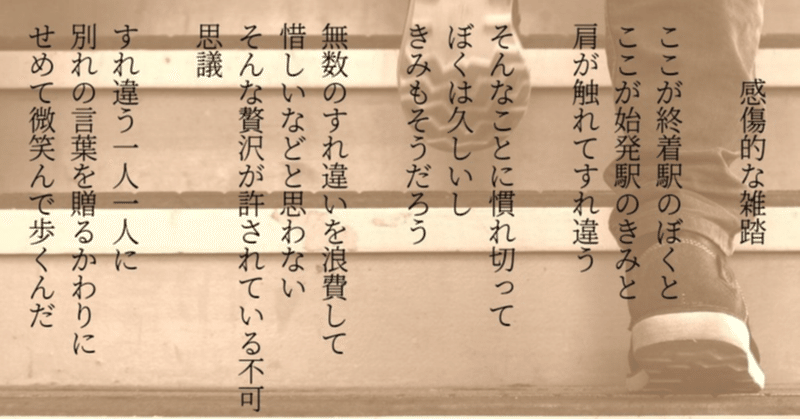 感傷的な雑踏
ここが終着駅のぼくと
ここが始発駅のきみと
肩が触れてすれ違う
そんなことに慣れ切って
ぼくは久しいし
きみもそうだろう
無数のすれ違いを浪費して
惜しいなどと思わない
そんな贅沢が許されている不可
思議
すれ違う一人一人に
別れの言葉を贈るかわりに
せめて微笑んで歩くんだ